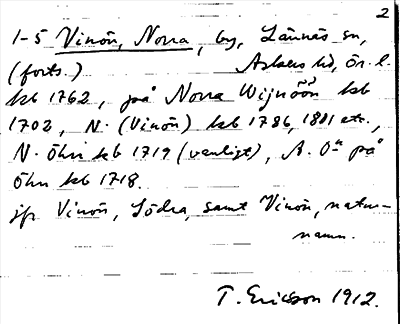 2
1-5 Vinön, Norra, by, Lännäs sn,
(forts.) Askers hd, Ör. l.
kb 1762, på Norra Wijnöön kb
1702, N. (Vinön) kb 1786, 1801 etc.,
N. Öhn kb 1719 (vanligt), A. Ön på
Öhn kb 1718.
jfr Vinön, Södra, samt Vinön, natur-
namn.
T. Ericsson 1912.